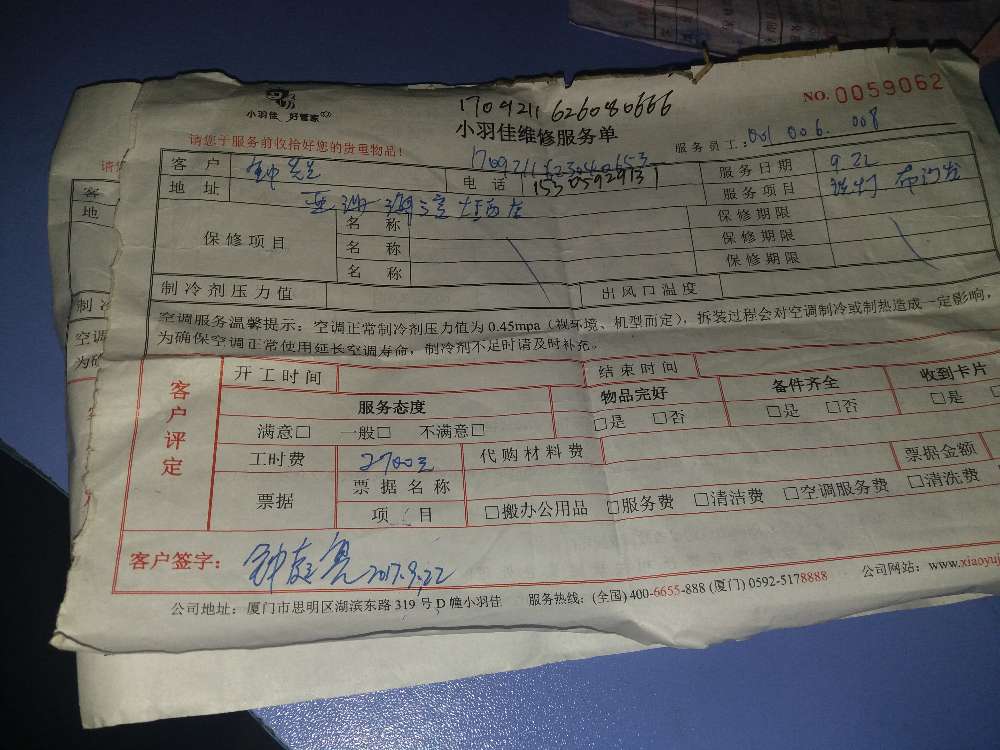 小羽佳 好管家
1709211626080666
NO. 0059062
小羽佳维修服务单
请您于服务前收拾好您的贵重物品！
服务员工： 001 006. 008
客户 钟先生
电话 15305929131
服务日期 9.22
地址
服务项目 布沙发
保修项目
名称 保修期限
名称 保修期限
名称 保修期限
制冷剂压力值 出风口温度
空调服务温馨提示：空调正常制冷剂压力值为 0.45mpa（视环境、机型而定），拆装过程会对空调制冷或制热造成一定影响，
为确保空调正常使用延长空调寿命，制冷剂不足时请及时补充。
客户评定
开工时间 结束时间
服务态度 物品完好 备件齐全 收到卡片
满意□ 一般□ 不满意□ □是 □否 □是 □否 □是
工时费 2700元 代购材料费 票据金额
票据 票据名称
项目 □搬办公用品 □服务费 □清洁费 □空调服务费 □清洗费
客户签字： 钟庭亮 2017.9.22
公司地址：厦门市思明区湖滨东路 319 号 D 幢小羽佳 服务热线：(全国) 400-6655-888 (厦门) 0592-5178888 公司网站：www.xiaoyuj